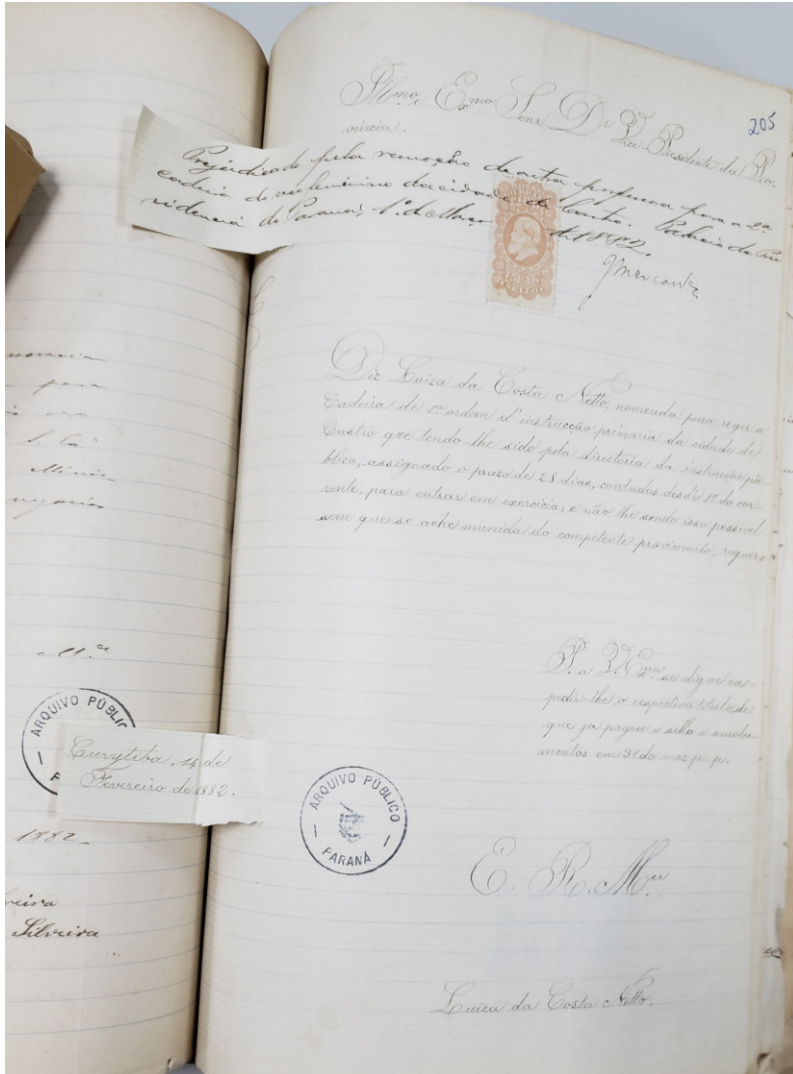 205
Illmo. Exmo. Senr. Dr. Vice Presidente da Pro
vincia.
Prejudicado pela remoção de outra professora para a 2ª
cadeira do sexo feminino da cidade de Castro. Palacio da Pre
sidencia do Paraná, 1º de Março de 1882.
Diz Luiza da Costa Netto, nomeada para reger a
Cadeira de 1ª ordem d'instrucção primaria da cidade de
Castro que tendo-lhe sido pela directoria da instrucção pú-
blica, assignado o prazo de 28 dias, contados desde 1º do cor-
rente, para entrar em exercicio, e não lhe sendo isso possivel
sem que se ache munida do competente provimento, requer e
P. a V. Exª. se digne ex-
pedir-lhe o respectivo titulo, de
que ja pagou o sello e emolu-
mentos em 31 do mez p. p.
E. R. Mce
Luiza da Costa Netto.
Curytiba, 14 de
Fevereiro de 1882.
ARQUIVO PÚBLICO
PARANÁ
ARQUIVO PÚBLIC
P
para
Mª
1882
Silveira